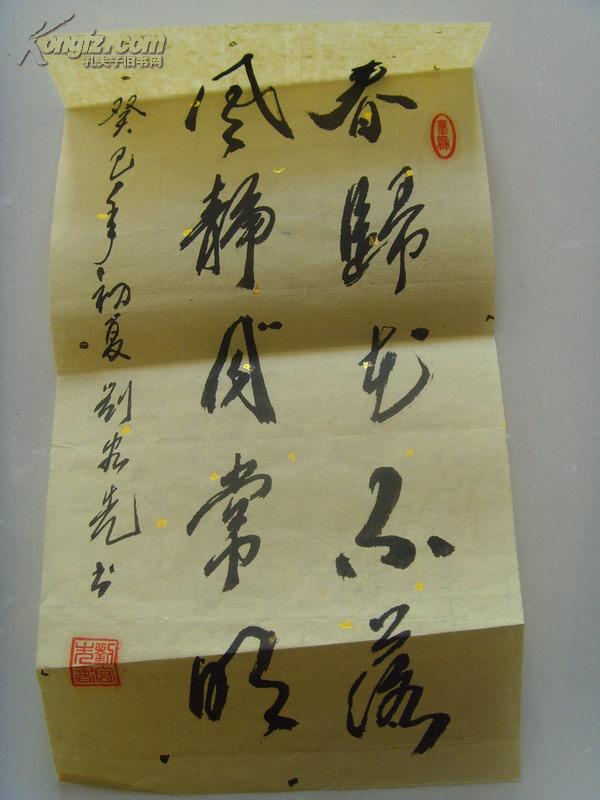 春歸花不落
風静月常明
癸巳年初夏劉宏先書
Kongfz.com
孔夫子旧书网